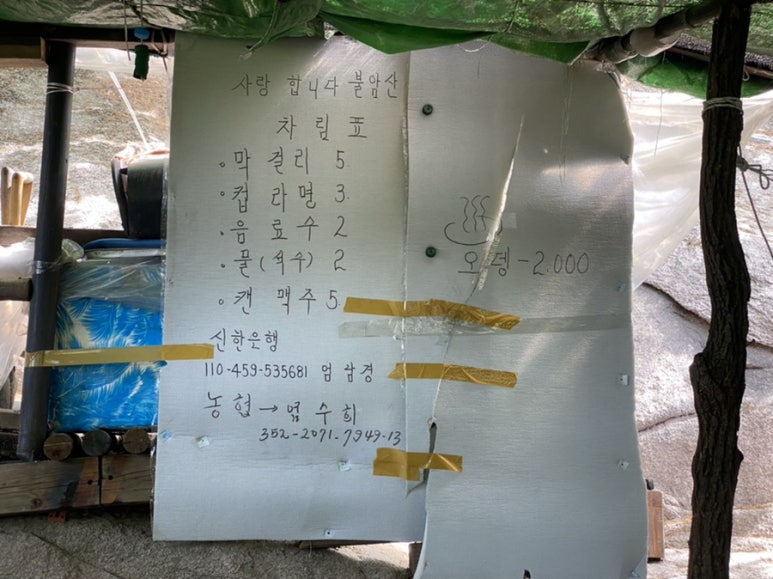 사랑 합니다 불암산
차림표
• 막걸리 5
• 컵라면 3.
• 음료수 2
• 물(석수) 2
• 캔맥주 5.
신한은행
110-459-535681 엄삼경
농협→엄수희
352-2071-7949-13
오뎅-2.000